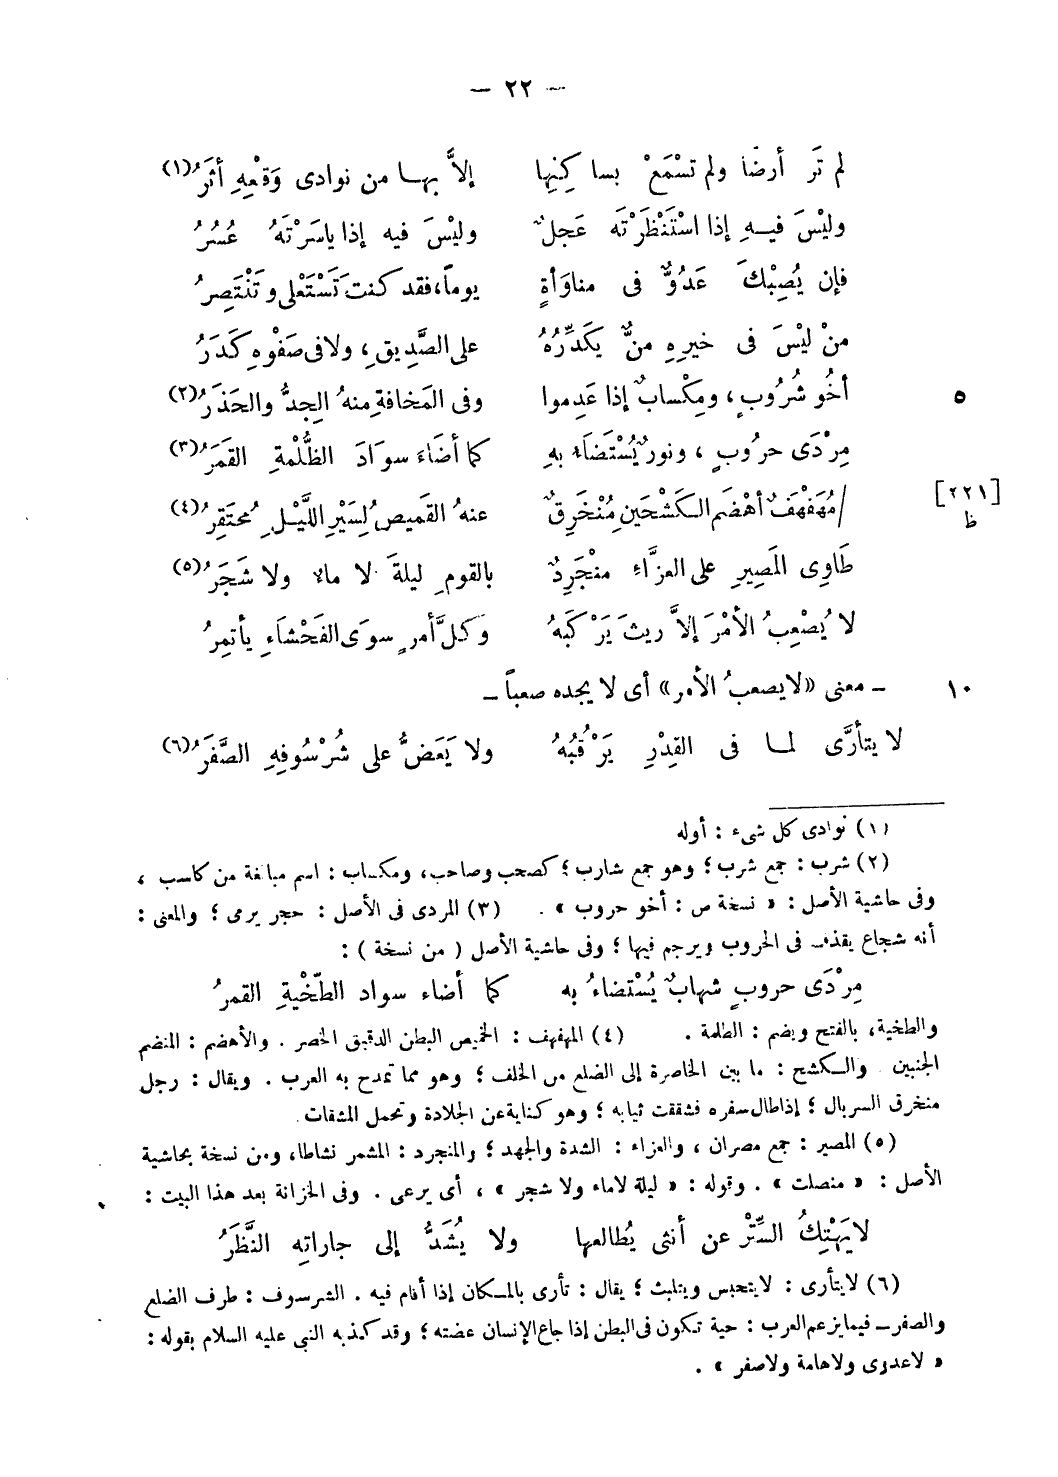 — ٢٢ —
لم تَرَ أرضًا ولم تسْمَعْ بساكِنِها إلاَّ بهـا من نوادى وَقعْهِ أثَرُ(١)
وليْسَ فيـهِ إذا اسْتَنْظَرْتَه عَجلٌ وليْسَ فيه إذا ياسَرْتَهُ عُسُرُ
فإن يُصِبْكَ عَدُوٌّ فى مناوَأةٍ يوماً، فقد كنتَ تَسْتَعْلى وتَنْتَصِرُ
منْ ليْسَ فى خيرِهِ منٌّ يكَدِّرُهُ على الصَّدِيقِ، ولا فى صَفْوِهِ كَدَرُ
٥ أخُو شُرُوبٍ، ومِكْسابٌ إذا عَدِموا وفى المَخافةِ منهُ الجِدُّ والحَذَرُ(٢)
مِرْدَى حرُوبٍ، ونورٌ يُسْتَضَاءُ بهِ كما أضَاءَ سوَادَ الظُّلْمةِ القمَرُ(٣)
[٢٢١ ظ] /مُهَفْهَفٌ أهْضَم الـكَشْحَينِ مُنْخَرِقٌ عنهُ القَميصُ لِسَيْرِ اللَّيْلِ مُحتَقِرُ(٤)
طَاوِى المَصِيرِ على العزَّاءِ منْجَرِدٌ بالقومِ ليلةَ لا ماءٌ ولا شَجَرُ(٥)
لا يُصْعِبُ الأمْرَ إلاَّ ريثَ يَرْكَبهُ وَكلَّ أمرٍ سوَى الفَحْشاءِ يأتمِرُ
١٠ – معنى «لا يصعبُ الأمر» أى لا يجده صعباً –
لا يتأرَّى لمـا فى القِدْرِ يَرْقُبُهُ ولا يَعَضُّ على شُرْسُوفِهِ الصَّفَرُ(٦)
(١) نوادى كل شىء : أوله
(٢) شرب : جمع شرب؛ وهو جمع شارب؛ كصحب وصاحب، ومكساب : اسم مبالغة من كاسب ،
وفى حاشية الأصل : « نسخة ص : أخو حروب » . (٣) المردى فى الأصل : حجر يرمى؛ والمعنى :
أنه شجاع يقذف فى الحروب ويرجم فيها؛ وفى حاشية الأصل ( من نسخة ) :
مِرْدَى حروبٍ شهابٌ يُسْتضاءُ به كما أضاء سواد الطّخْيةِ القمرُ
والطخية، بالفتح ويضم : الظلمة . (٤) المهفهف : الخميص البطن الدقيق الخصر . والأهضم : المنضم
الجنبين والـكشح : ما بين الخاصرة إلى الضلع من الخلف؛ وهو مما تمدح به العرب . ويقال : رجل
منخرق السربال؛ إذا طال سفره فشققت ثيابه؛ وهو كناية عن الجلادة وتحمل المشقات.
(٥) المصير : جمع مصران ، والعزاء : الشدة والجهد؛ والمنجرد : المشمر نشاطا، ومن نسخة بحاشية
الأصل : « منصلت » . وقوله : « ليلة لا ماء ولا شجر » ، أى يرعى . وفى الخزانة بعد هذا البيت :
لا يَهْتِكُ السِّتْرَ عن أنثى يُطالعها ولا يُشَدُّ إلى جاراتِه النَّظَرُ
(٦) لا يتأرى : لا يتحبس ويتلبث؛ يقال : تأرى بالمـكان إذا أقام فيه . الشرسوف : طرف الضلع
والصفر – فيما يزعم العرب : حية تكون فى البطن إذا جاع الإنسان عضته؛ وقد كذبه النبى عليه السلام بقوله :
« لا عدوى ولا هامة ولا صفر » .